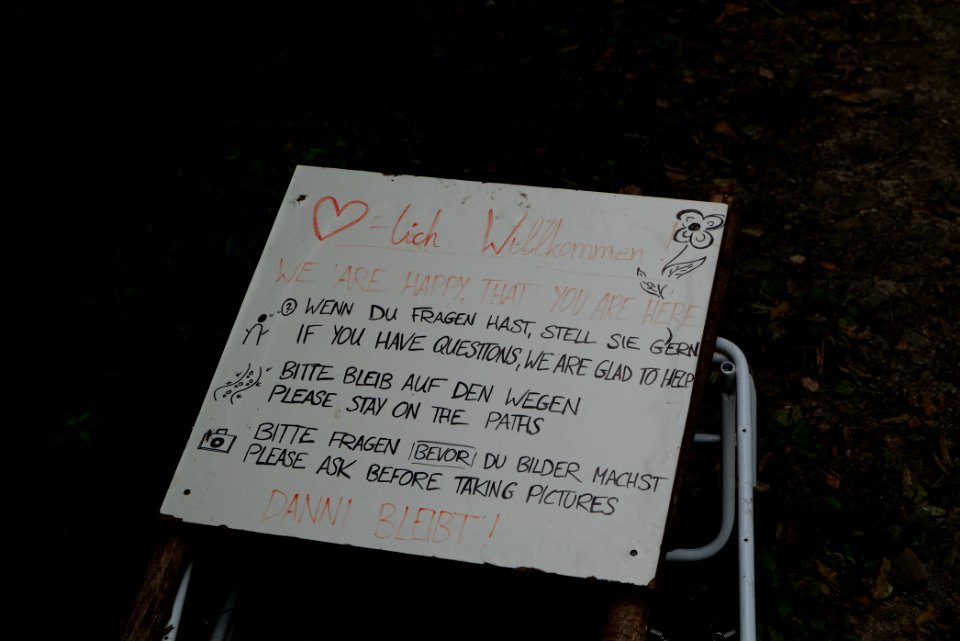 ♥=lich Willkommen!
WE ARE HAPPY, THAT YOU ARE HERE
? WENN DU FRAGEN HAST, STELL SIE GERN
IF YOU HAVE QUESTIONS, WE ARE GLAD TO HELP
BITTE BLEIB AUF DEN WEGEN
PLEASE STAY ON THE PATHS
BITTE FRAGEN BEVOR DU BILDER MACHST
PLEASE ASK BEFORE TAKING PICTURES
DANNI BLEIBT!